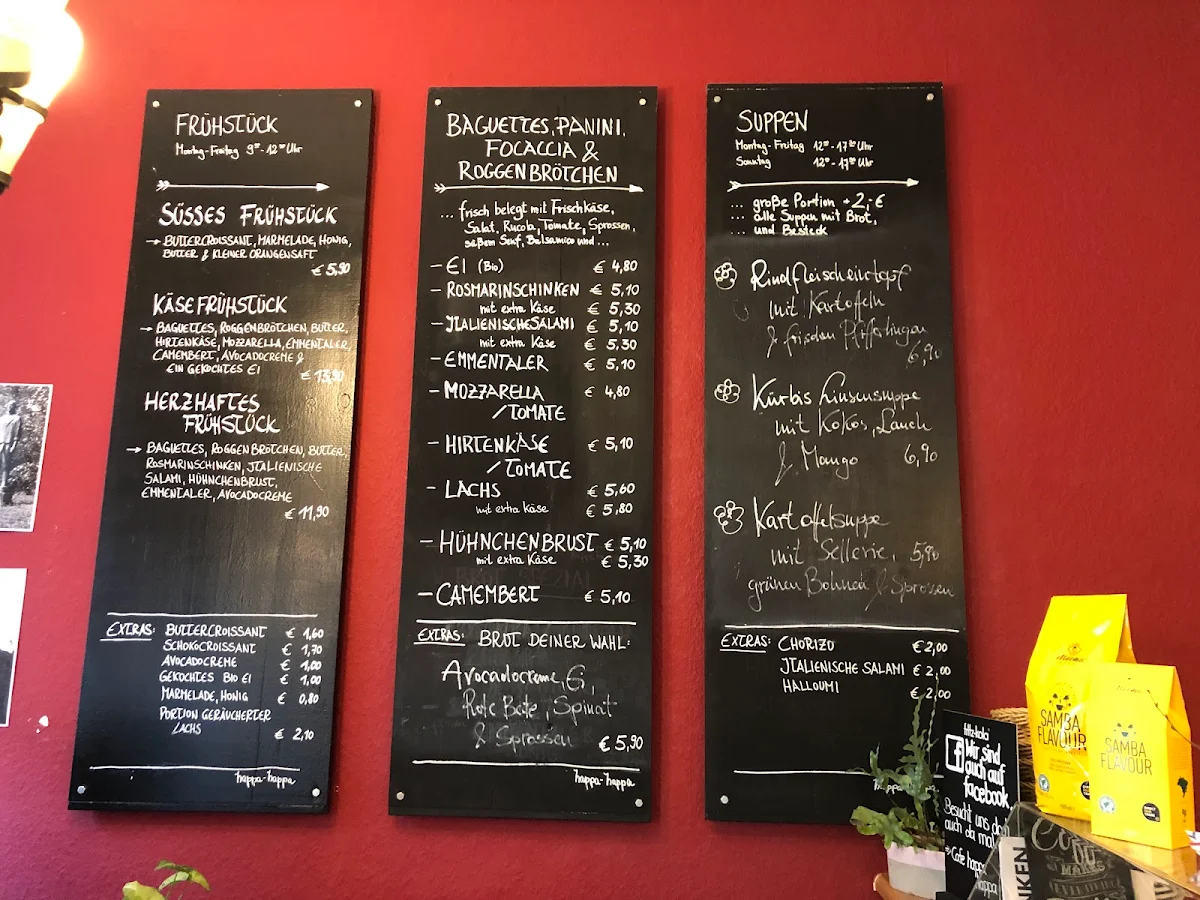 FRÜHSTÜCK
Montag-Freitag 9⁰⁰-12⁰⁰ Uhr
SÜSSES FRÜHSTÜCK
→ BUTTERCROISSANT, MARMELADE, HONIG,
BUTTER & KLEINER ORANGENSAFT
€ 5,90
KÄSEFRÜHSTÜCK
→ BAGUETTES, ROGGENBRÖTCHEN, BUTTER,
HIRTENKÄSE, MOZZARELLA, EMMENTALER,
CAMEMBERT, AVOCADOCREME &
EIN GEKOCHTES EI € 13,90
HERZHAFTES
FRÜHSTÜCK
→ BAGUETTES, ROGGENBRÖTCHEN, BUTTER,
ROSMARINSCHINKEN, ITALIENISCHE
SALAMI, HÜHNCHENBRUST,
EMMENTALER, AVOCADOCREME
€ 11,90
EXTRAS: BUTTERCROISSANT € 1,60
SCHOKOCROISSANT € 1,70
AVOCADOCREME € 1,00
GEKOCHTES BIO EI € 1,00
MARMELADE, HONIG € 0,80
PORTION GERÄUCHERTER
LACHS € 2,10
happa-happa
BAGUETTES, PANINI,
FOCACCIA &
ROGGENBRÖTCHEN
... frisch belegt mit Frischkäse,
Salat, Rucola, Tomate, Sprossen,
süßem Senf, Balsamico und ...
- EI (Bio) € 4,80
- ROSMARINSCHINKEN € 5,10
mit extra Käse € 5,30
- ITALIENISCHE SALAMI € 5,10
mit extra Käse € 5,30
- EMMENTALER € 5,10
- MOZZARELLA € 4,80
/TOMATE
- HIRTENKÄSE € 5,10
/TOMATE
- LACHS € 5,60
mit extra Käse € 5,80
- HÜHNCHENBRUST € 5,10
mit extra Käse € 5,30
- CAMEMBERT € 5,10
EXTRAS: BROT DEINER WAHL:
Avocadocreme,
Rote Bete, Spinat
& Sprossen € 5,90
happa-happa
SUPPEN
Montag-Freitag 12⁰⁰-17³⁰ Uhr
Sonntag 12⁰⁰-17⁰⁰ Uhr
... große Portion + 2,- €
... alle Suppen mit Brot,
... und Besteck
Rindfleischeintopf
mit Kartoffeln
& frischen Pfifferlingen
6,90
Kürbis Linsensuppe
mit Kokos, Lauch
& Mango 6,90
Kartoffelsuppe
mit Sellerie, 5,90
grünen Bohnen & Sprossen
EXTRAS: CHORIZO € 2,00
ITALIENISCHE SALAMI € 2,00
HALLOUMI € 2,00
happa
fritz-kola
f Wir sind
auch auf
facebook.
Besucht uns doch
auch da mal
→ Cafe happa
happa
SAMBA
FLAVOUR
SAMBA
FLAVOUR